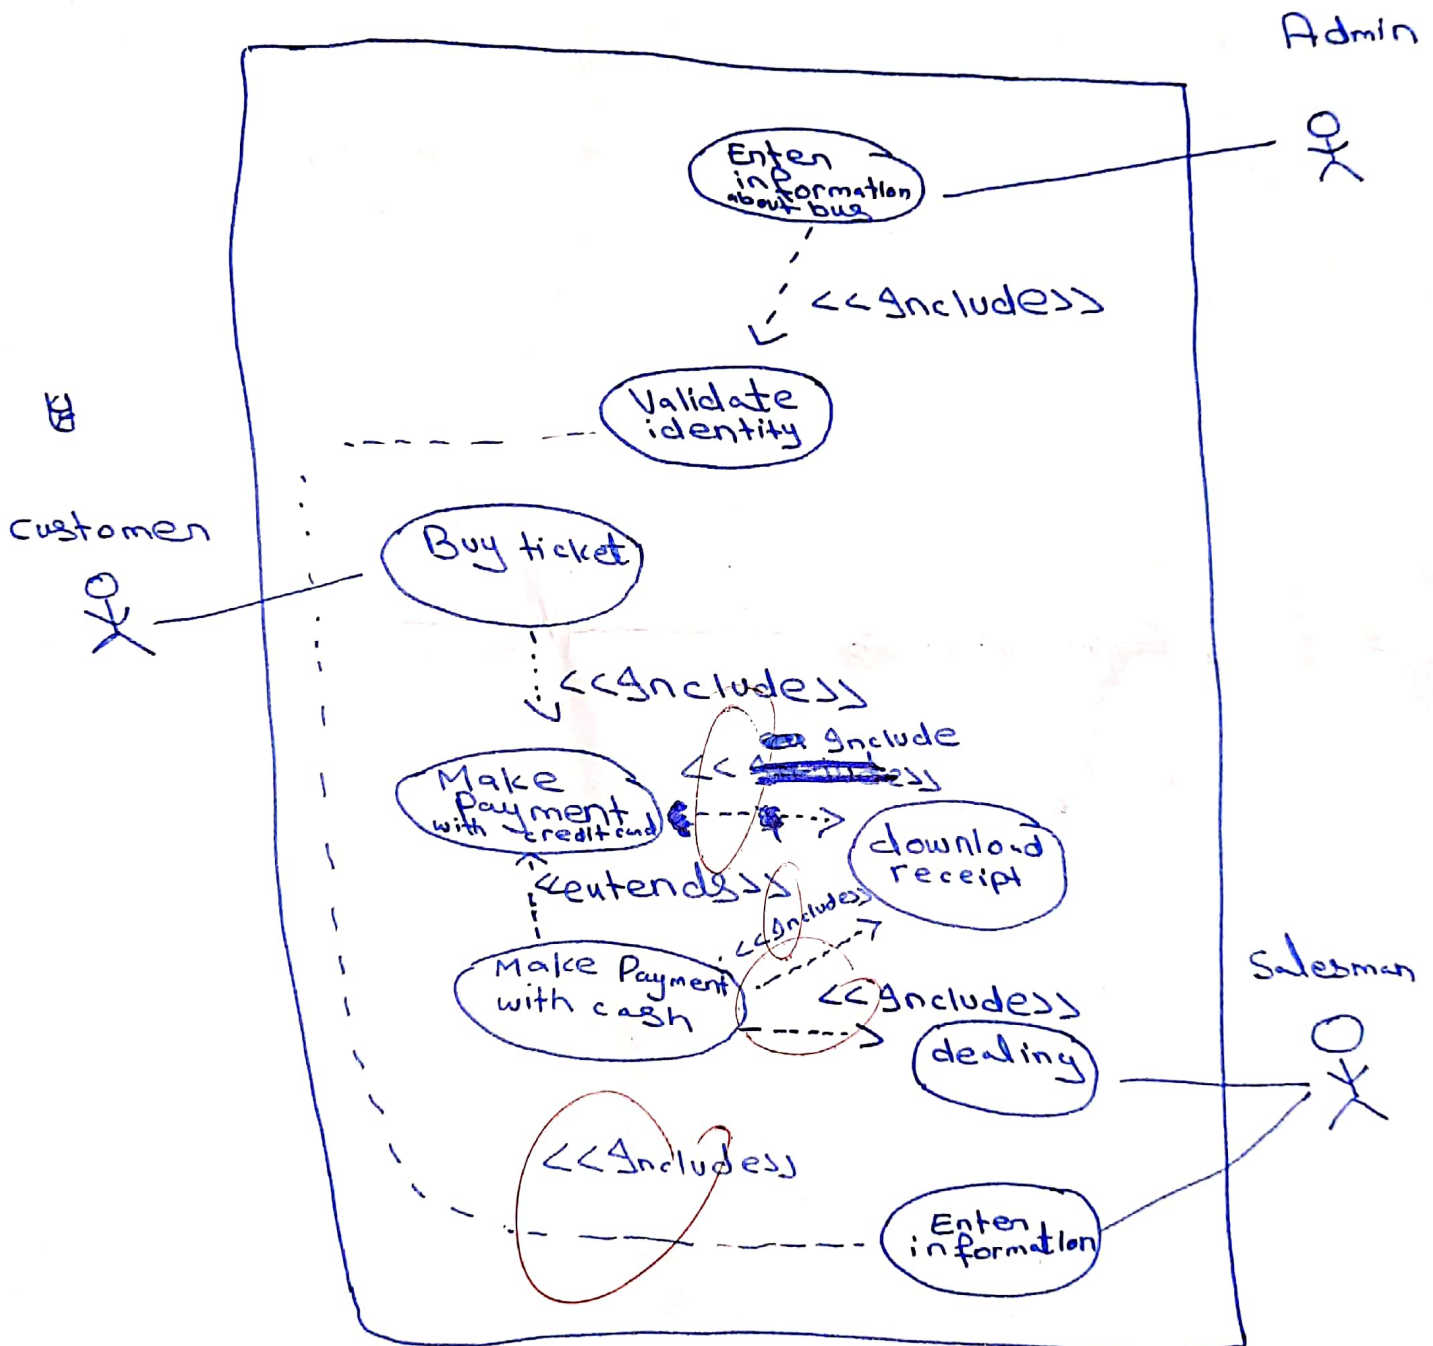 Admin
Enter
information
about bus
<<Include>>
Validate
identity
customer
Buy ticket
<<Include>>
Include
<< >>
Make
Payment
with credit card
download
receipt
<<extends>>
<<Include>>
Make Payment
with cash
<<Include>>
Salesman
dealing
<<Include>>
Enter
information